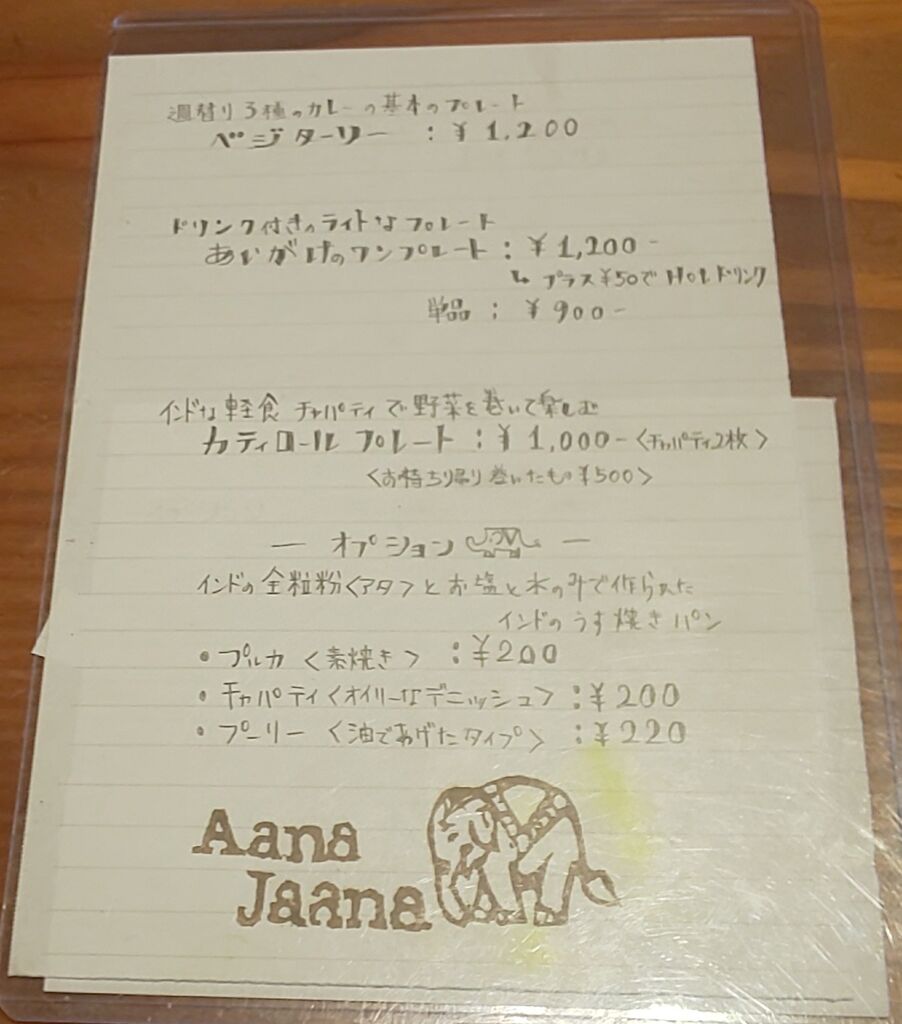 週替り3種のカレーの基本のプレート
ベジターリー : ¥1,200
ドリンク付きのライトなプレート
あいがけのワンプレート : ¥1,200-
↳ プラス¥50で Hotドリンク
単品 : ¥900-
インドな軽食 チャパティで野菜を巻いて楽しむ
カティロールプレート : ¥1,000-<チャパティ2枚>
<お持ち帰り巻いたもの¥500>
— オプション —
インドの全粒粉<アタ>とお塩と水のみで作られた
インドのうす焼きパン
・プルカ <素焼き> : ¥200
・チャパティ<オイリーなデニッシュ> : ¥200
・プーリー <油であげたタイプ> : ¥220
Aana
Jaana